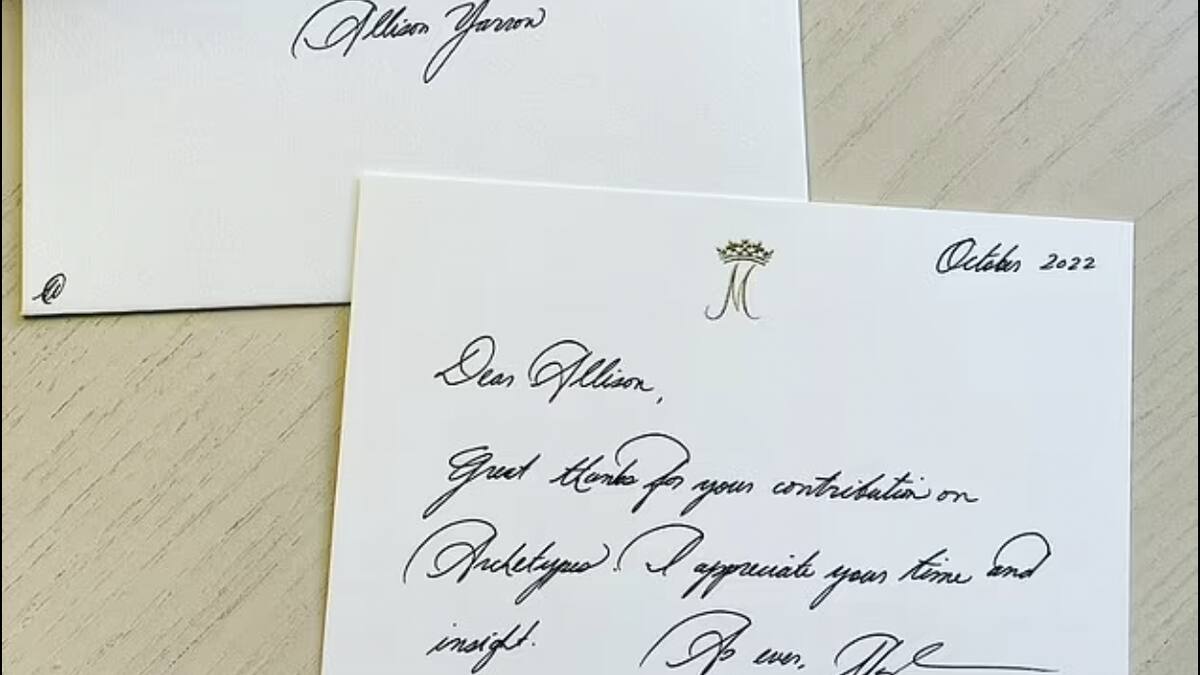 Allison Yarrow
M
October 2022
Dear Allison,
Great thanks for your contribution on
Archetypes. I appreciate your time and
insight. As ever,